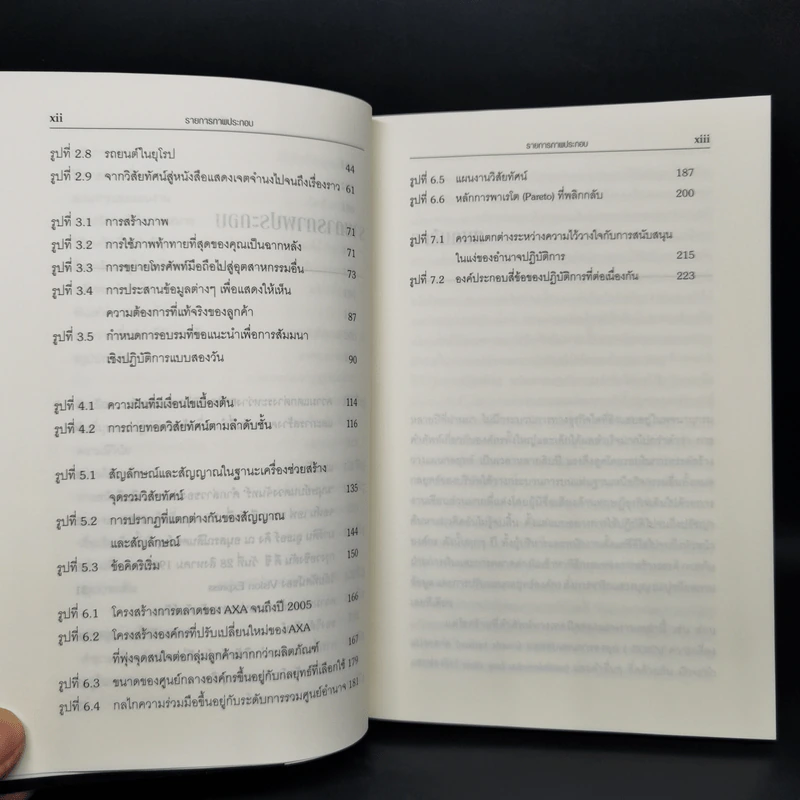 xii รายการภาพประกอบ
รูปที่ 2.8 รถยนต์ในยุโรป 44
รูปที่ 2.9 จากวิสัยทัศน์สู่หนังสือแสดงเจตจำนงไปจนถึงเรื่องราว 61
รูปที่ 3.1 การสร้างภาพ 71
รูปที่ 3.2 การใช้ภาพท้าทายที่สุดของคุณเป็นฉากหลัง 71
รูปที่ 3.3 การขยายโทรศัพท์มือถือไปสู่อุตสาหกรรมอื่น 73
รูปที่ 3.4 การประสานข้อมูลต่างๆ เพื่อแสดงให้เห็น
ความต้องการที่แท้จริงของลูกค้า 87
รูปที่ 3.5 กำหนดการอบรมที่ขอแนะนำเพื่อการสัมมนา
เชิงปฏิบัติการแบบสองวัน 90
รูปที่ 4.1 ความฝันที่มีเงื่อนไขเบื้องต้น 114
รูปที่ 4.2 การถ่ายทอดวิสัยทัศน์ตามลำดับชั้น 116
รูปที่ 5.1 สัญลักษณ์และสัญญาณในฐานะเครื่องช่วยสร้าง
จุดรวมวิสัยทัศน์ 135
รูปที่ 5.2 การปรากฏที่แตกต่างกันของสัญญาณ
และสัญลักษณ์ 144
รูปที่ 5.3 ข้อคิดริเริ่ม 150
รูปที่ 6.1 โครงสร้างการตลาดของ AXA จนถึงปี 2005 166
รูปที่ 6.2 โครงสร้างองค์กรที่ปรับเปลี่ยนใหม่ของ AXA
ที่พุ่งจุดสนใจต่อกลุ่มลูกค้ามากกว่าผลิตภัณฑ์ 167
รูปที่ 6.3 ขนาดของศูนย์กลางองค์กรขึ้นอยู่กับกลยุทธ์ที่เลือกใช้ 179
รูปที่ 6.4 กลไกความร่วมมือขึ้นอยู่กับระดับการรวมศูนย์อำนาจ 181
รายการภาพประกอบ xiii
รูปที่ 6.5 แผนงานวิสัยทัศน์ 187
รูปที่ 6.6 หลักการพาเรโต (Pareto) ที่พลิกกลับ 200
รูปที่ 7.1 ความแตกต่างระหว่างความไว้วางใจกับการสนับสนุน
ในแง่ของอำนาจปฏิบัติการ 215
รูปที่ 7.2 องค์ประกอบสี่ข้อของปฏิบัติการที่ต่อเนื่องกัน 223